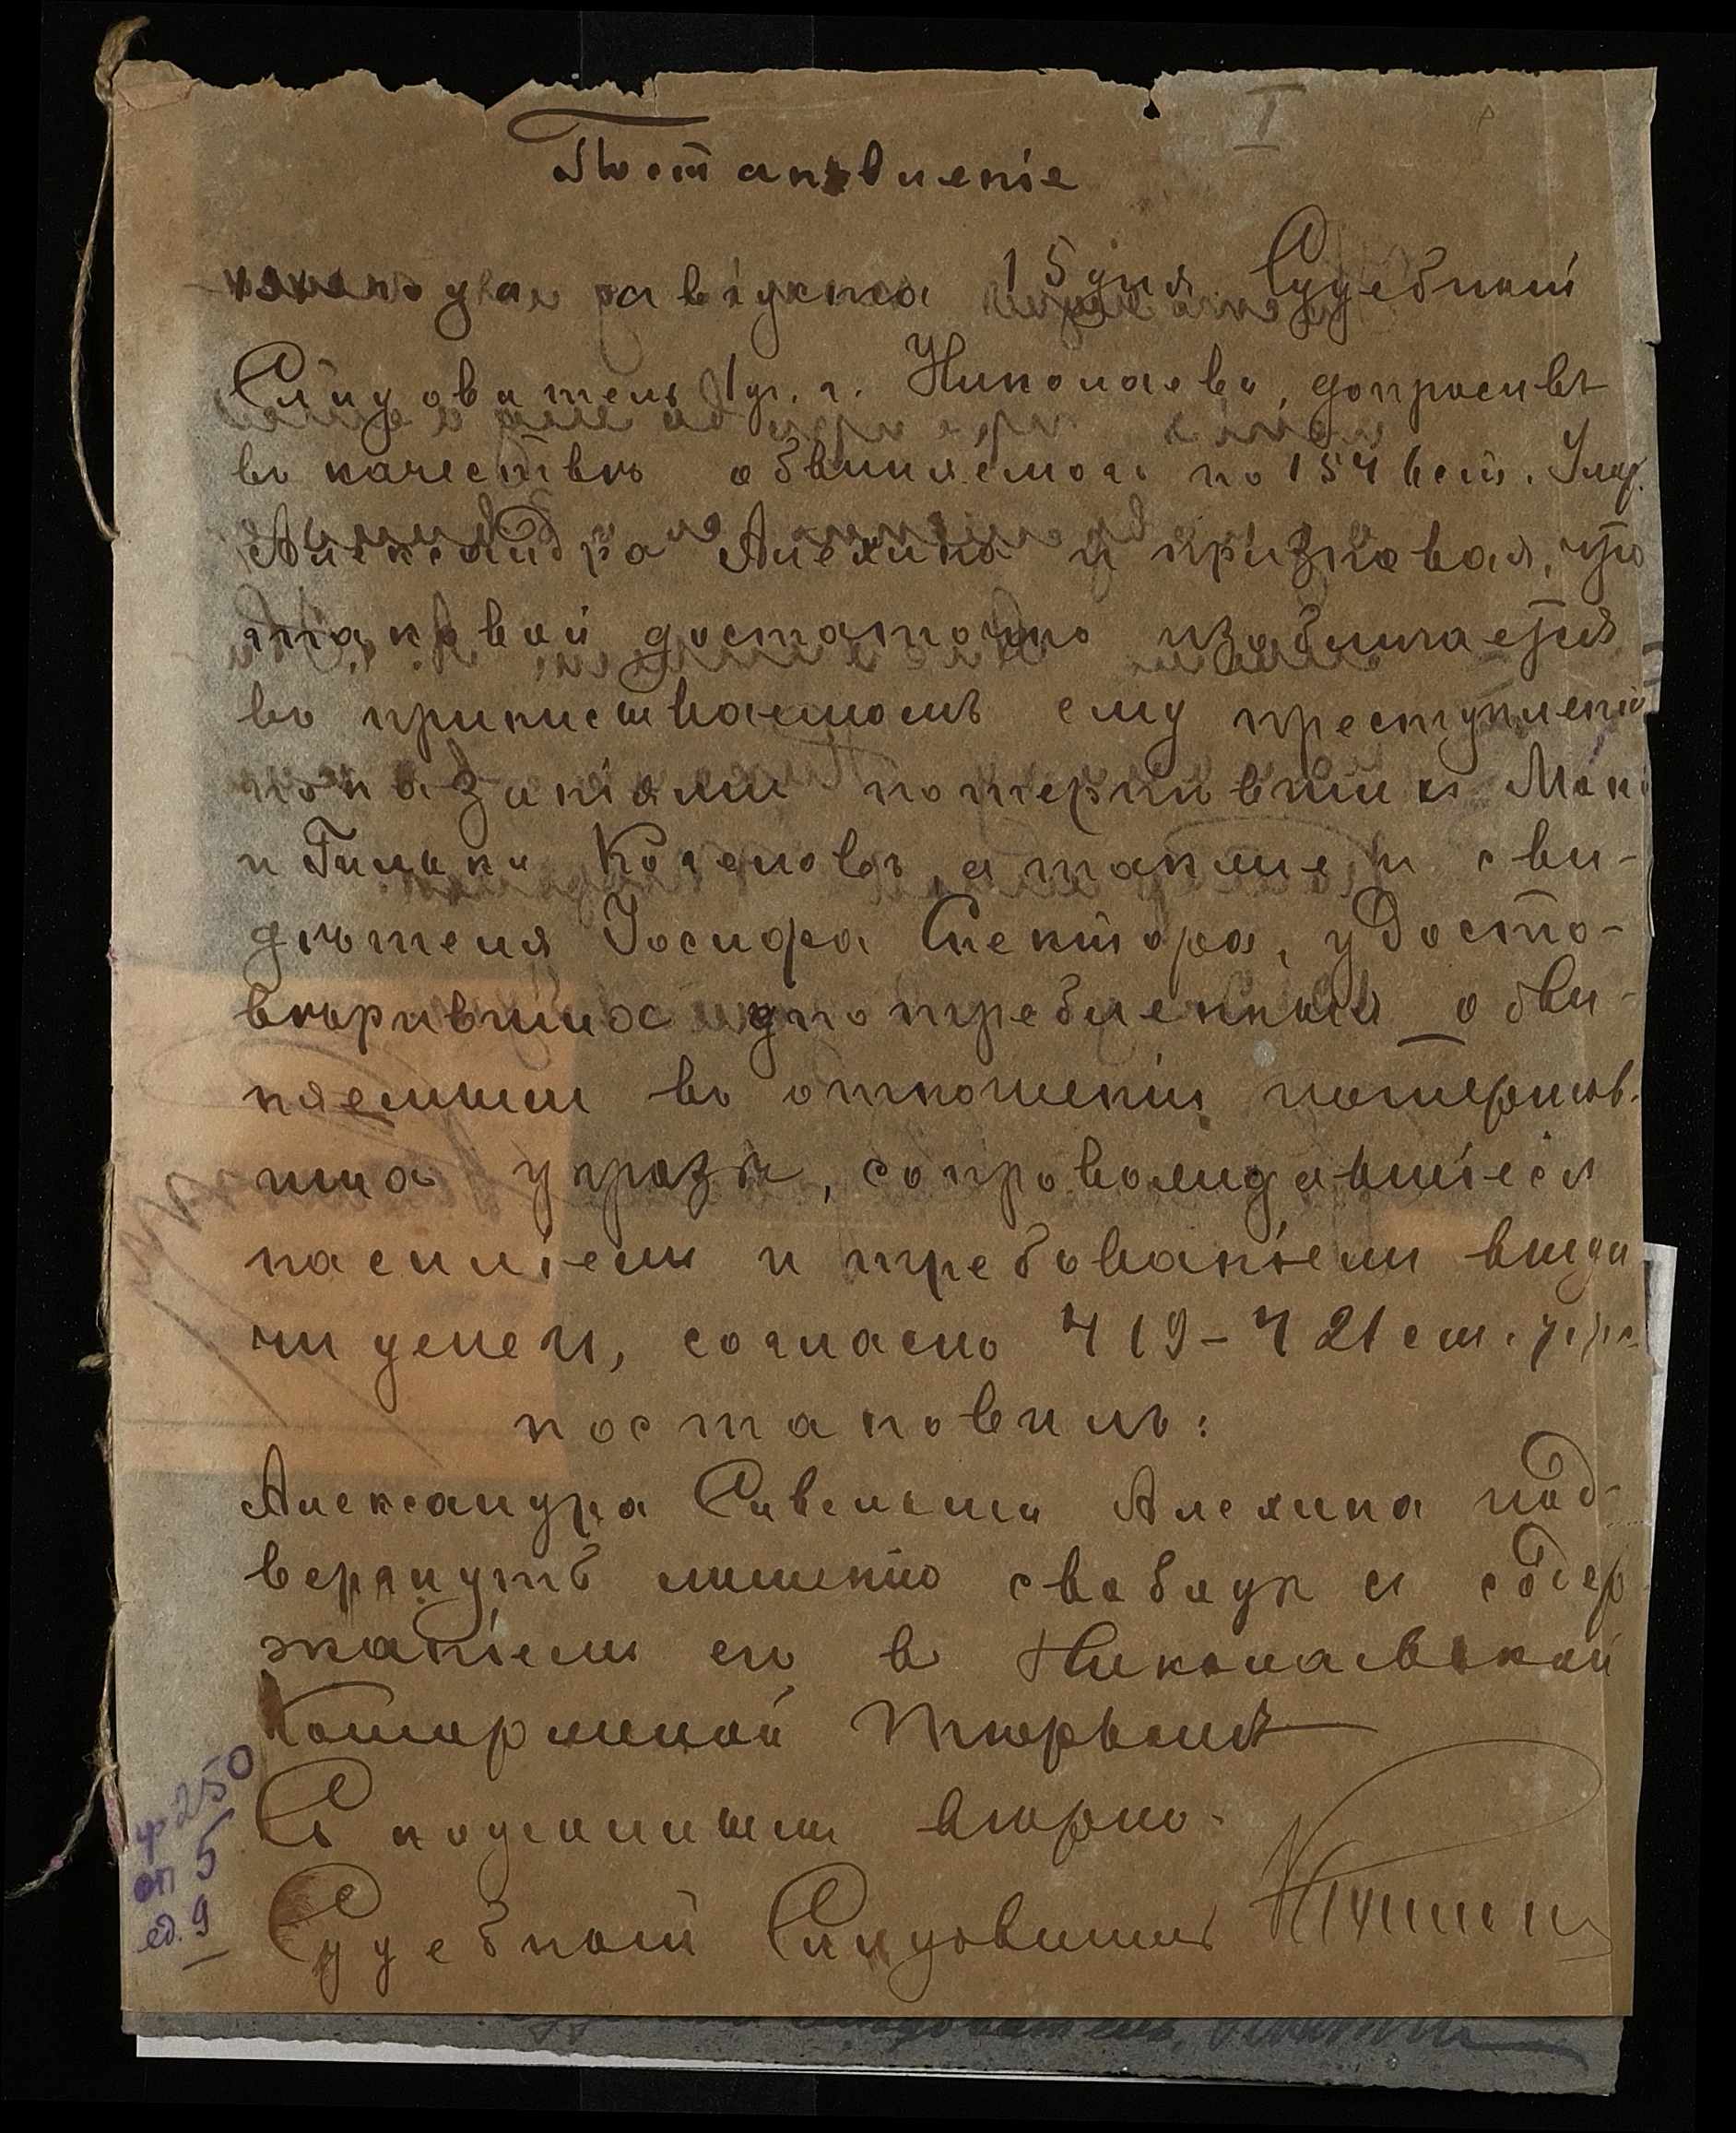 I
Постановленіе
года августа 15 дня Судебный
Слѣдователь 1 уч. г. Николаева, допросивъ
въ качествѣ обвиняемаго по 1546 ст. Улож.
Александра Алехина и признавая, что
таковой достаточно изобличается
въ приписываемомъ ему преступленіи
показаніями потерпѣвшихъ
и Когановъ, а также и сви-
дѣтеля Іосифа Спектора, удосто-
вѣрившихъ употребленныя обви-
няемымъ въ отношеніи потерпѣв.
шихъ угрозы, сопровождавшіеся
насиліемъ и требованіемъ выда
чи денегъ, согласно 419-421 ст. у.у.с.
постановилъ:
Александра Савельева Алехина под-
вергнуть лишенію свободы съ содер
жаніемъ его въ Николаевской
Каторжной тюрьмѣ
Съ подлиннымъ вѣрно.
Судебный Слѣдователь
ф 250
оп 5
ед. 9